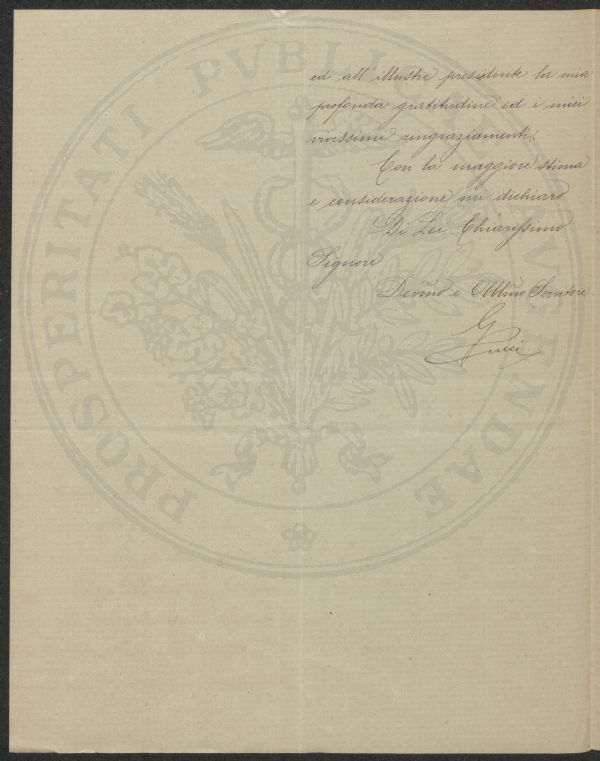 PROSPERITATI PVBLICAE AVGENDAE
ed all'illustre presidente la mia
profonda gratitudine ed i miei
vivissimi ringraziamenti.
Con la maggiore stima
e considerazione mi dichiaro
Di Lei Chiarissimo
Signore
Devmo e Obblmo Servitore
G Pucci